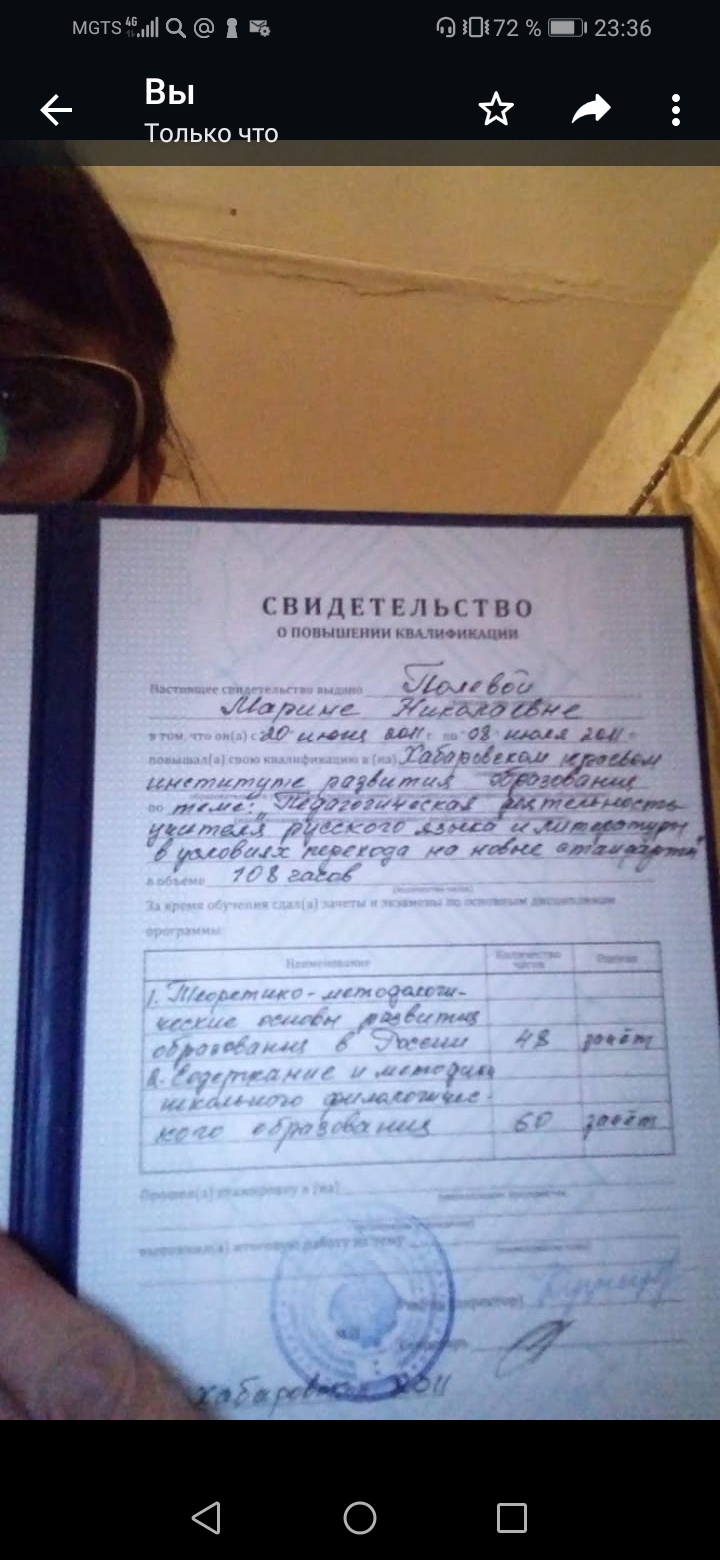 MGTS 4G 72 % 23:36
Вы
Только что
СВИДЕТЕЛЬСТВО
О ПОВЫШЕНИИ КВАЛИФИКАЦИИ
Настоящее свидетельство выдано Полевой
Марине Николаевне
в том, что он(а) с 20 июня 2011 г. по 08 июля 2011 г.
повышал(а) свою квалификацию в (на) Хабаровском краевом
институте развития образования
по теме: "Педагогическая деятельность
учителя русского языка и литературы
в условиях перехода на новые стандарты"
в объеме 108 часов
(количество часов)
За время обучения сдал(а) зачеты и экзамены по основным дисциплинам
программы:
Наименование Количество часов Оценка
1. Теоретико-методологи-
ческие основы развития
образования в России 48 зачёт
2. Содержание и методика
школьного филологичес-
кого образования 60 зачёт
Прошел(а) стажировку в (на)
выполнил(а) итоговую работу на тему
Ректор (директор)
М.П.
Секретарь
Хабаровск 2011